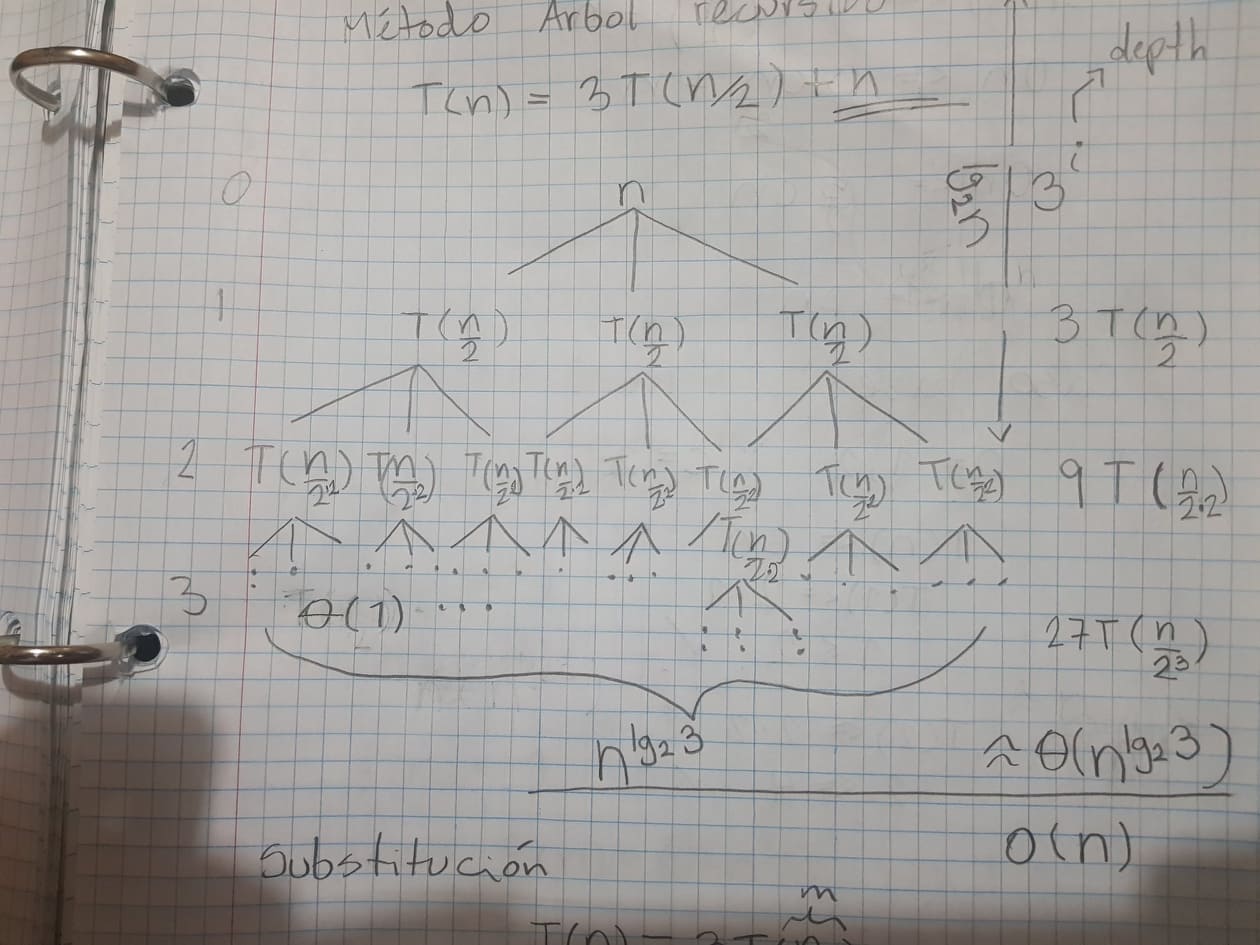 Método Arbol recursivo
depth
T(n) = 3T(n/2) + n
0 n lg₂n 3ⁱ
1 T(n/2) T(n/2) T(n/2) 3 T(n/2)
2 T(n/2·2) T(n/2·2) T(n/2·2) T(n/2·2) T(n/2·2) T(n/2·2) T(n/2·2) T(n/2·2) 9 T(n/2·2)
T(n/2·2)
3 θ(1) ... 27T(n/2³)
n^lg₂3 ≈ θ(n^lg₂3)
O(n)
Substitución
m